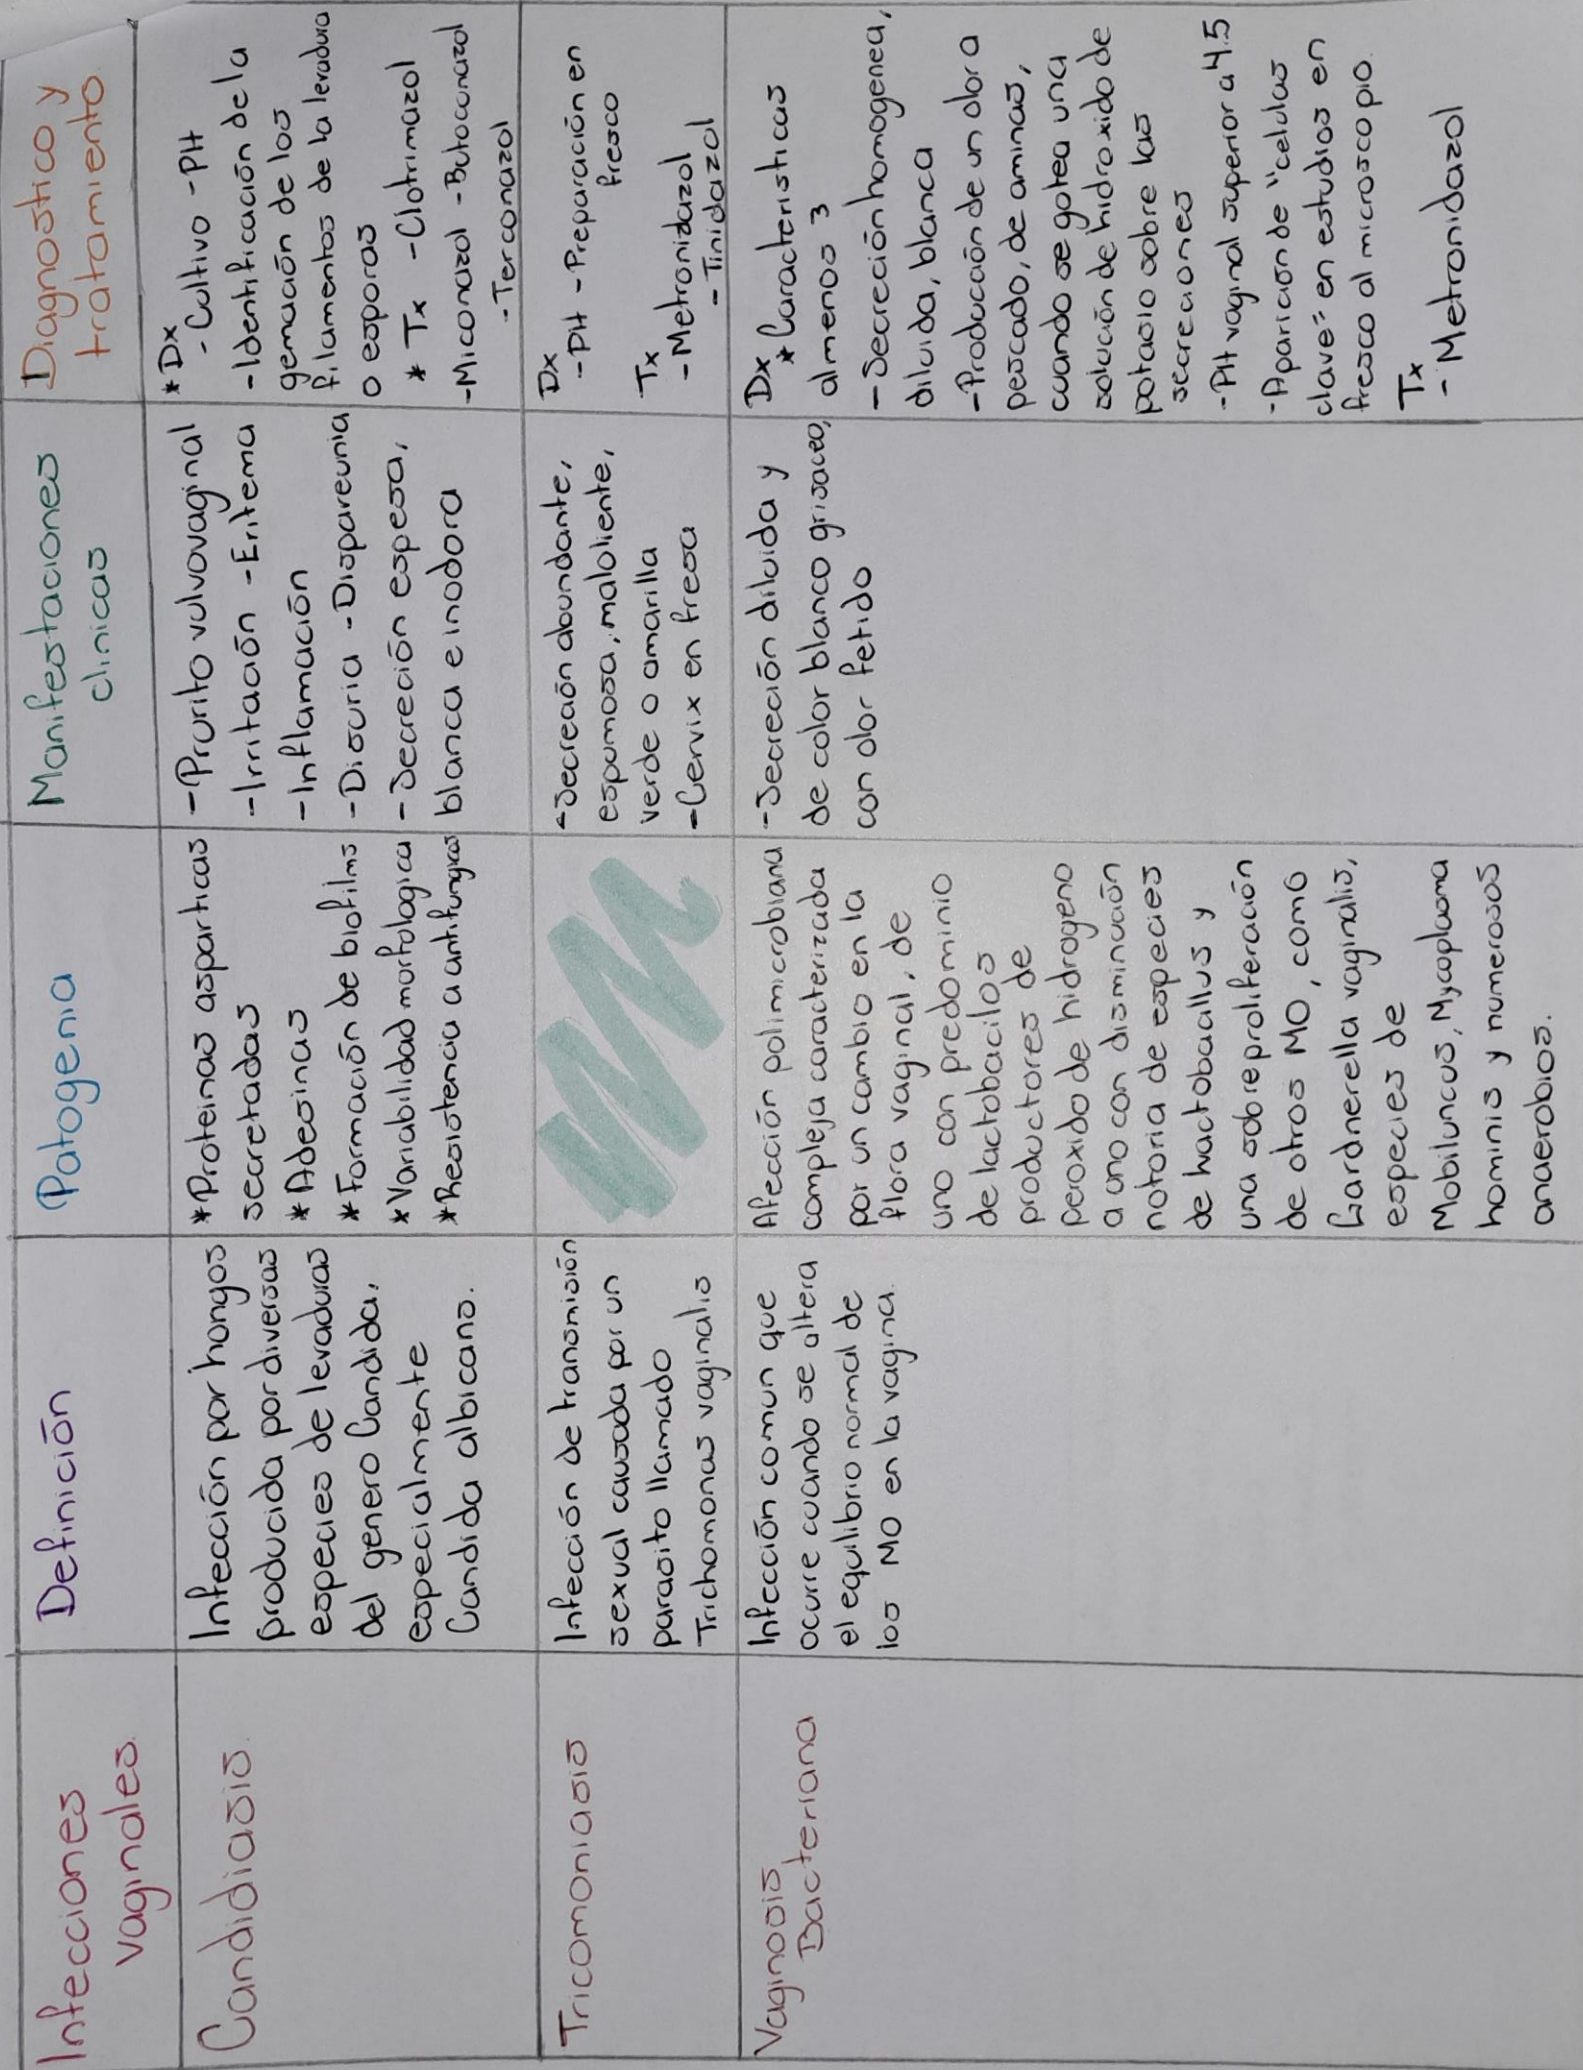 Infecciones
vaginales
Definición
Patogenia
Manifestaciones
clinicas
Diagnostico y
tratamiento
Candidiasis
Infección por hongos
producida por diversas
especies de levaduras
del genero Candida,
especialmente
Candida albicans.
*Proteinas asparticas
secretadas
*Adesinas
*Formación de biofilms
*Variabilidad morfologica
*Resistencia a antifungicos
-Prurito vulvovaginal
-Irritación -Eritema
-Inflamación
-Disuria -Dispareunia
-Secreción espesa,
blanca e inodora
*Dx
-Cultivo -PH
-Identificación de la
gemación de los
filamentos de la levadura
o esporas
* Tx -Clotrimazol
-Miconazol -Butoconazol
-Terconazol
Tricomoniasis
Infección de transmisión
sexual causada por un
parasito llamado
Trichomonas vaginalis
-Secreción abundante,
espumosa, maloliente,
verde o amarilla
-Cervix en fresa
Dx
-PH -Preparación en
fresco
Tx
-Metronidazol
-Tinidazol
Vaginosis
Bacteriana
Infección comun que
ocurre cuando se altera
el equilibrio normal de
los MO en la vagina.
Afección polimicrobiana
compleja caracterizada
por un cambio en la
flora vaginal, de
uno con predominio
de lactobacilos
productores de
peroxido de hidrogeno
a uno con disminución
notoria de especies
de Lactobacillus y
una sobreproliferación
de otros MO, como
Gardnerella vaginalis,
especies de
Mobiluncus, Mycoplasma
hominis y numerosos
anaerobios.
-Secreción diluida y
de color blanco grisaceo,
con olor fetido
Dx
*Caracteristicas
almenos 3
-Secreción homogenea,
diluida, blanca
-Producción de un olor a
pescado, de aminas,
cuando se gotea una
solución de hidroxido de
potasio sobre las
secreciones
-PH vaginal superior a 4.5
-Aparición de "celulas
clave" en estudios en
fresco al microscopio.
Tx
- Metronidazol